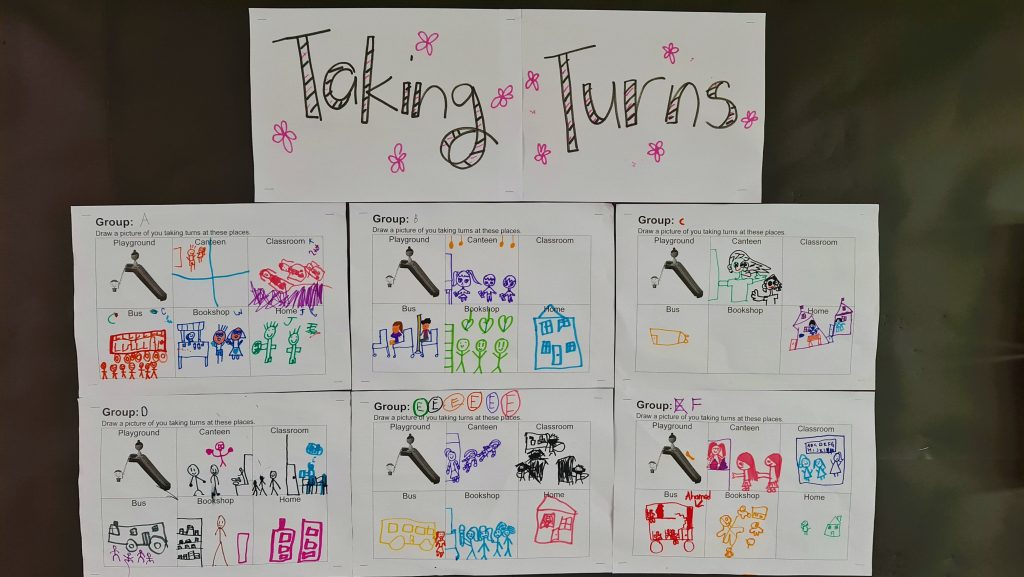 Taking Turns
Group: A
Draw a picture of you taking turns at these places.
Playground Canteen Classroom
Bus Bookshop Home
Group: b
Draw a picture of you taking turns at these places.
Playground Canteen Classroom
Bus Bookshop Home
Group: c
Draw a picture of you taking turns at these places.
Playground Canteen Classroom
Bus Bookshop Home
Group: D
Draw a picture of you taking turns at these places.
Playground Canteen Classroom
Bus Bookshop Home
Group: E E E E E E
Draw a picture of you taking turns at these places.
Playground Canteen Classroom
Bus Bookshop Home
Group: F
Draw a picture of you taking turns at these places.
Playground Canteen Classroom
ABCDEFG
Bus Bookshop Home
Ahamed